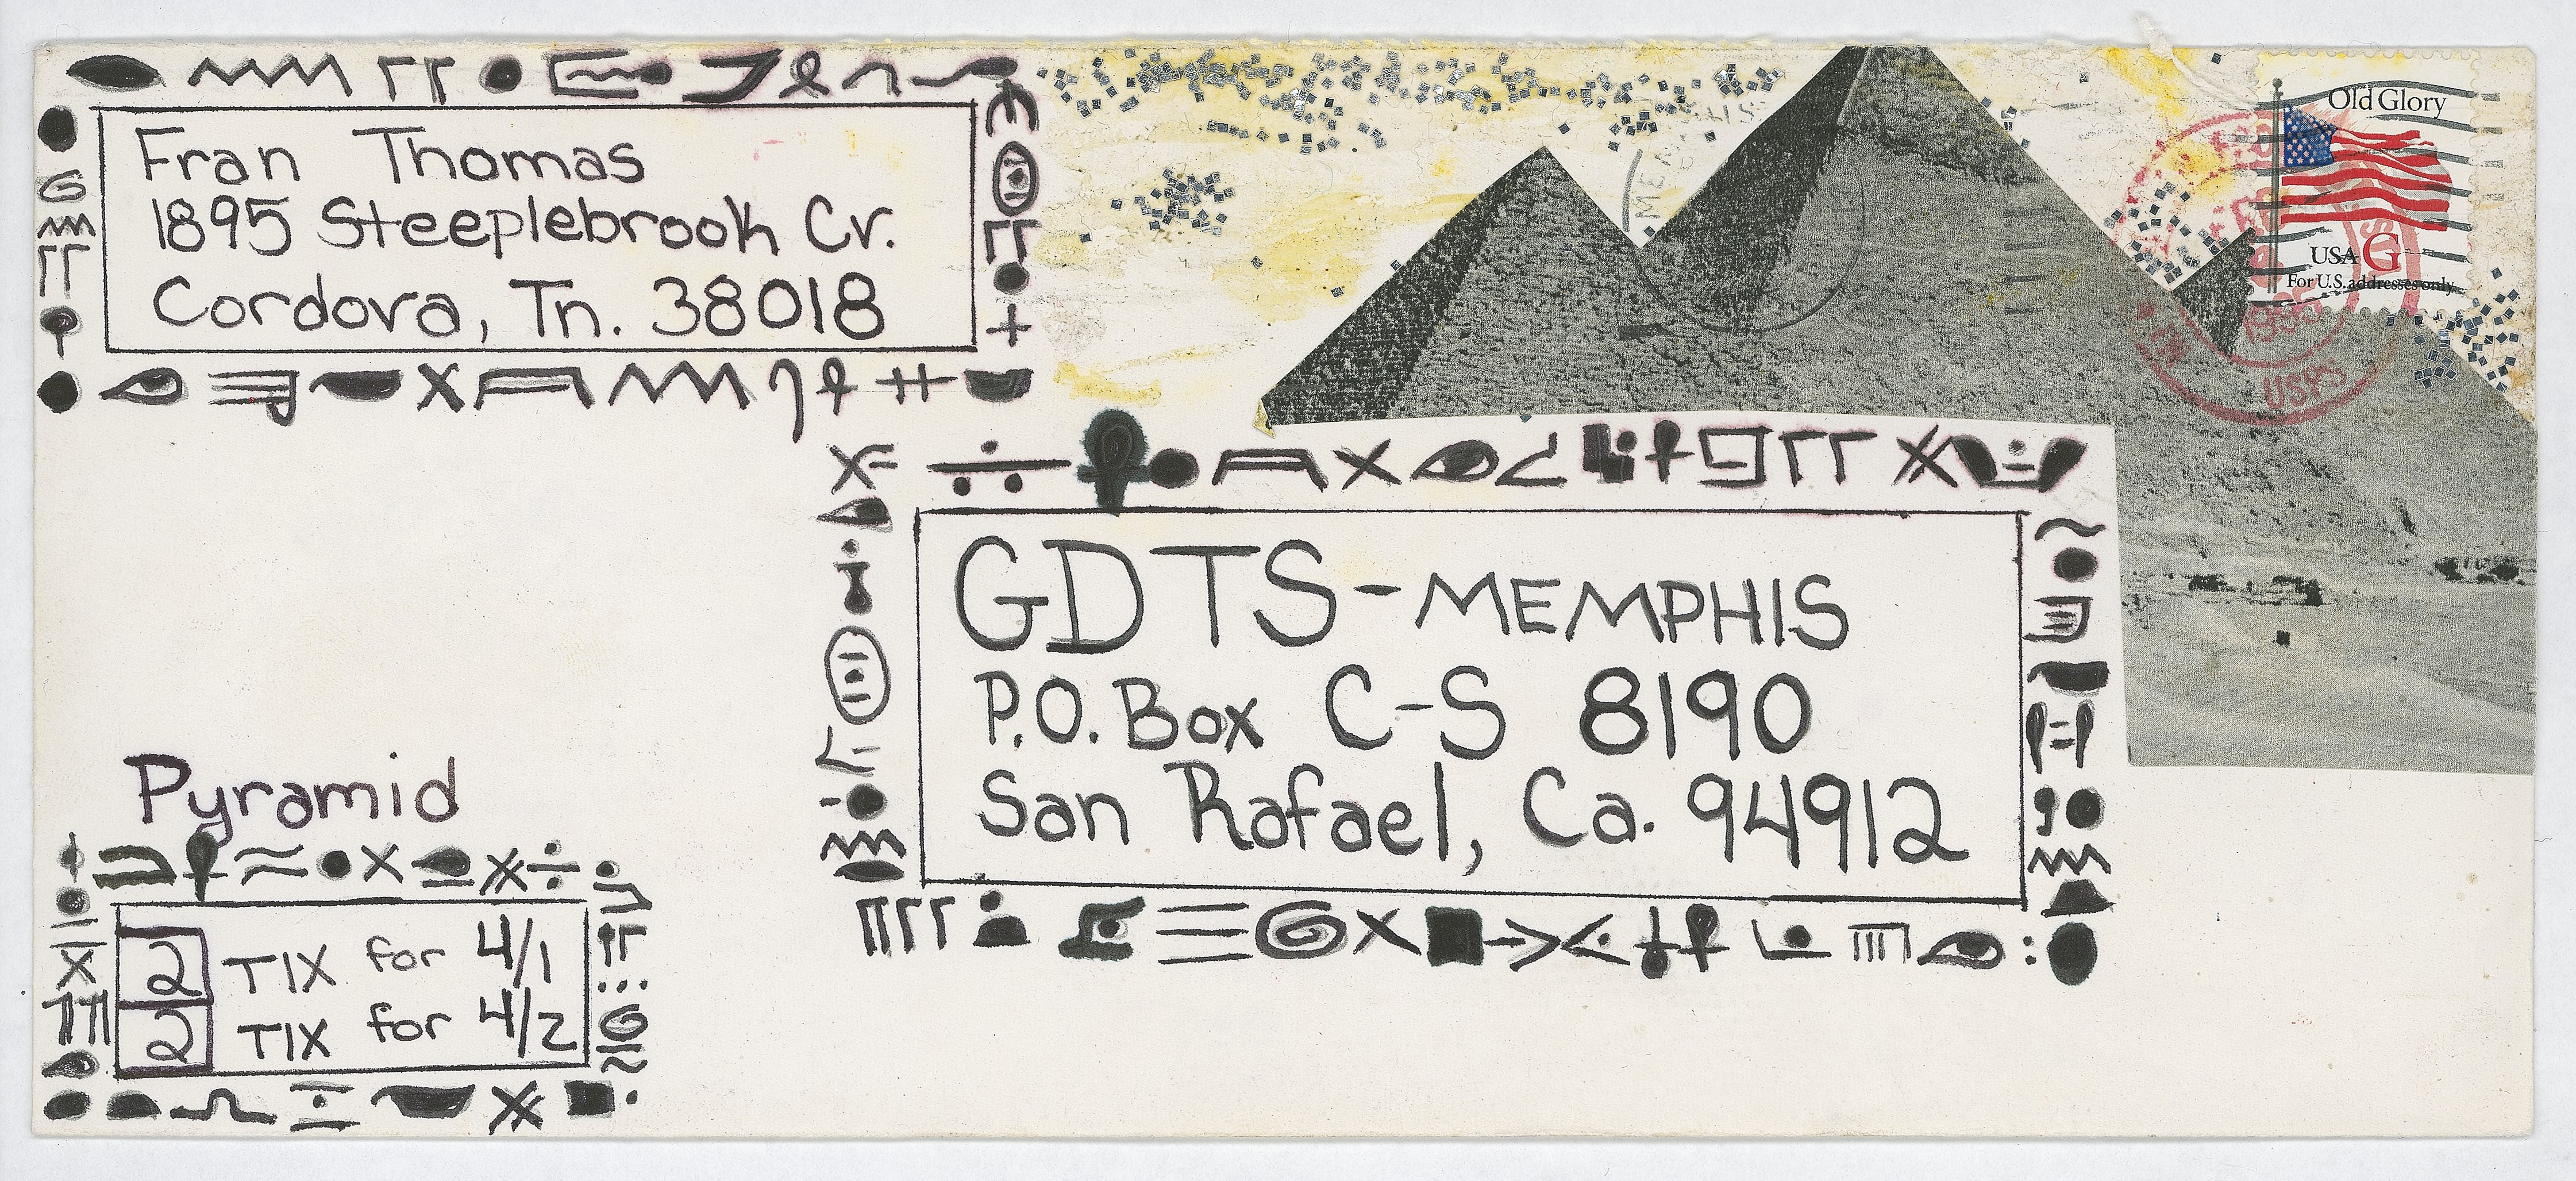 Fran Thomas
1895 Steeplebrook Cv.
Cordova, Tn. 38018
Old Glory
USA G
For U.S. addresses only
USPS
GDTS-MEMPHIS
P.O. Box C-S 8190
San Rafael, Ca. 94912
Pyramid
2 TIX for 4/1
2 TIX for 4/2